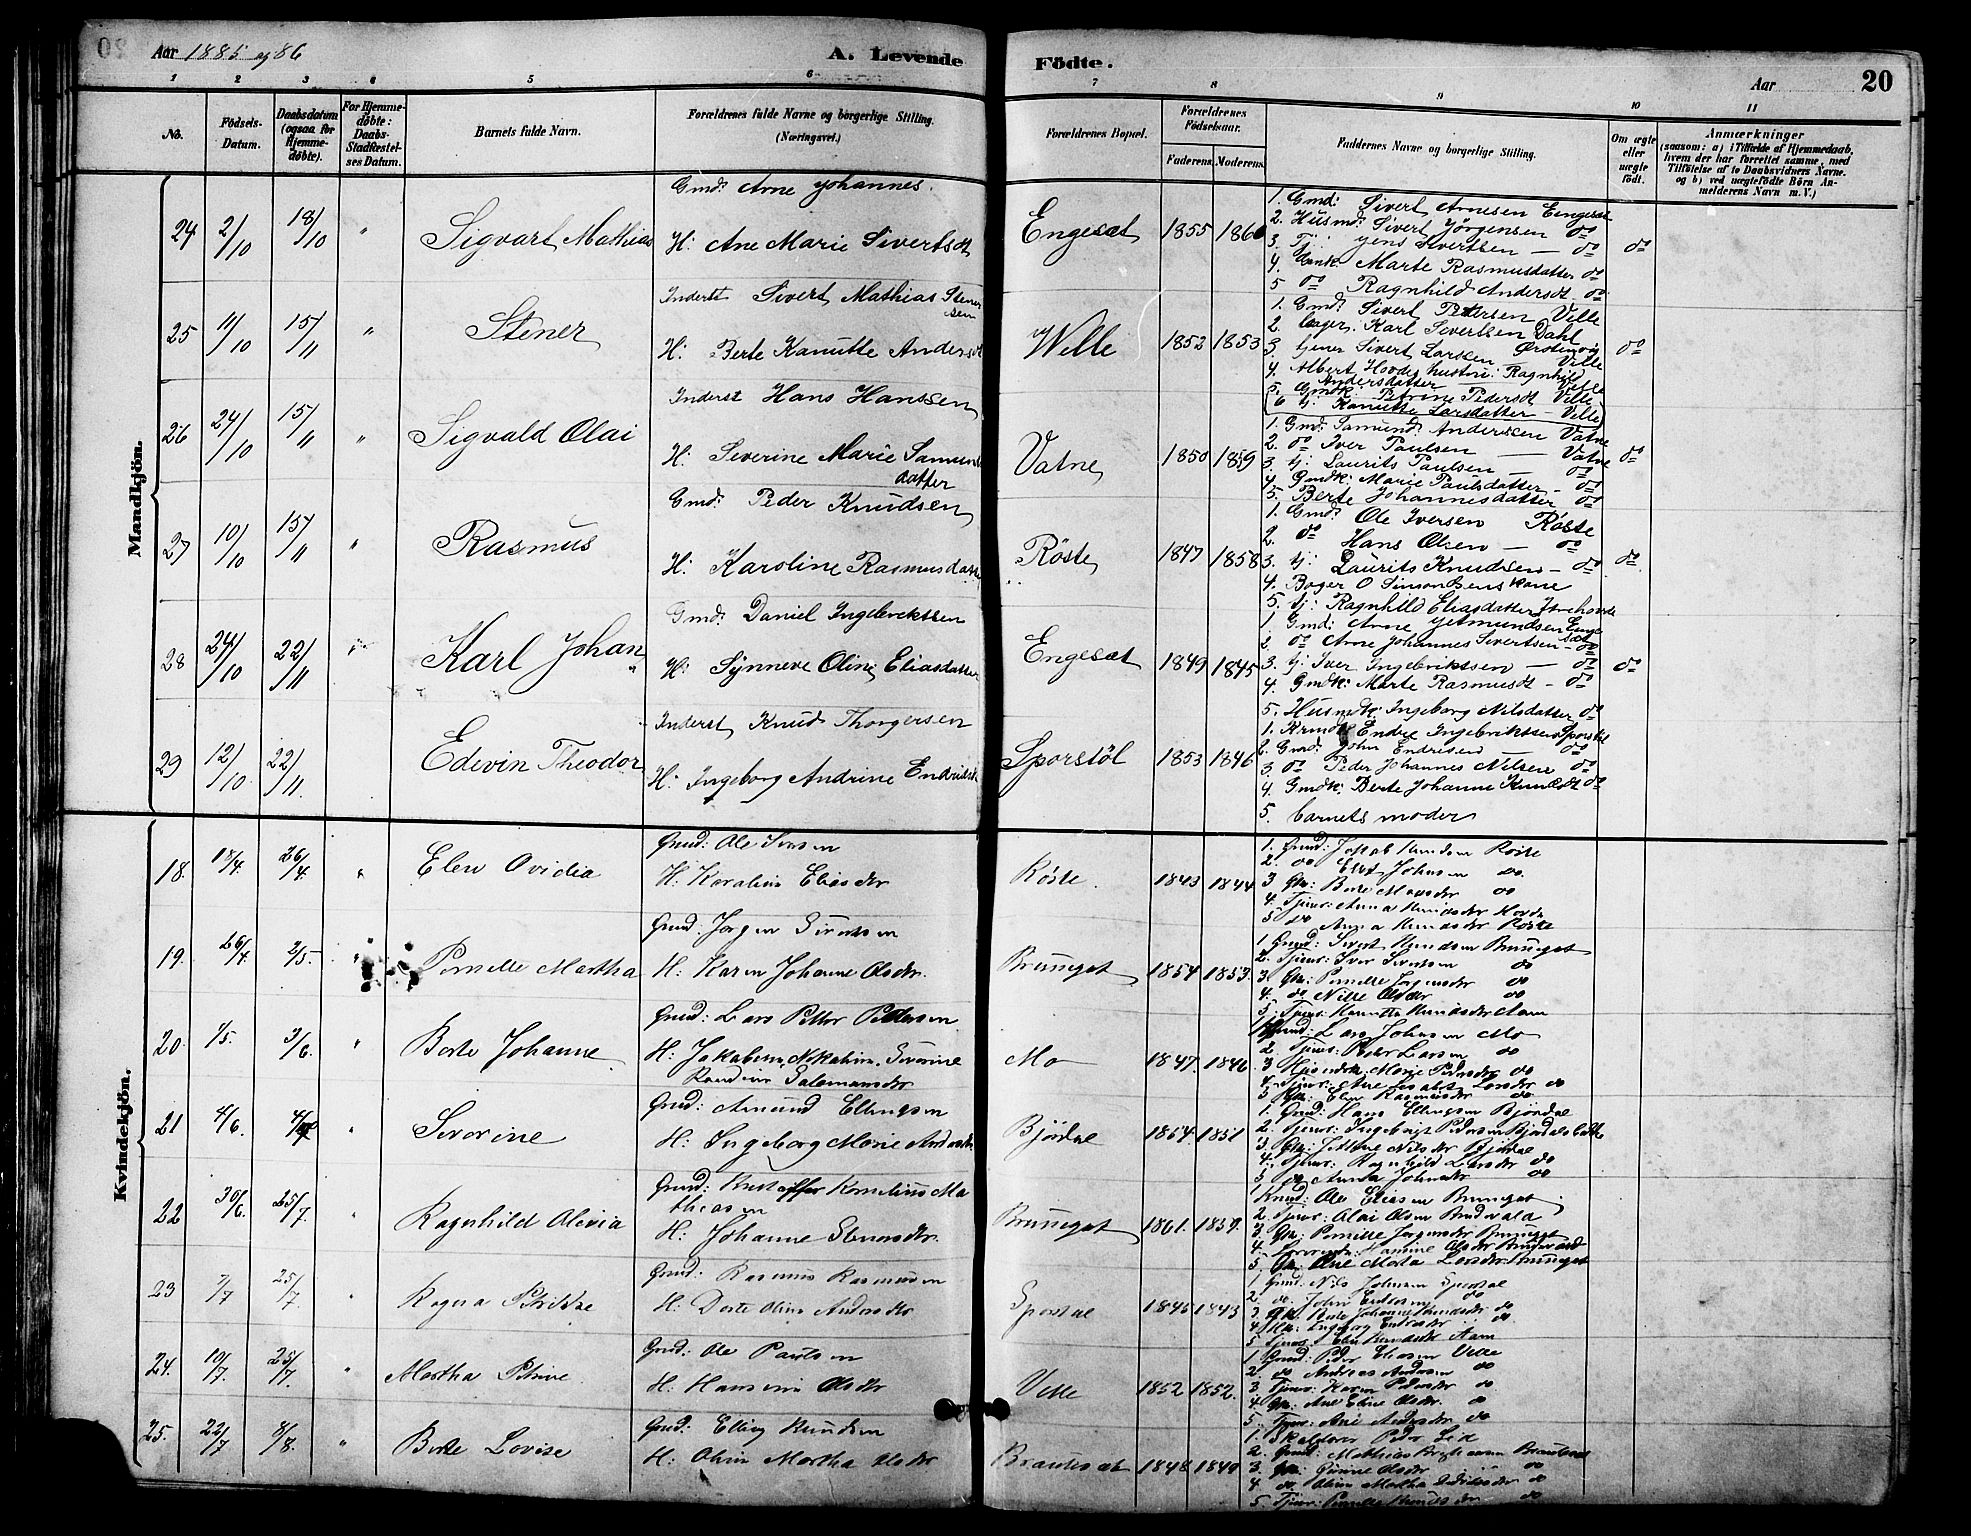 Aar 1885 og 86
A. Levende Födte.
Aar 20
1 2 3 4 5 6 7 8 9 10 11
No.
Födsels-Datum.
Daabsdatum (ogsaa for Hjemme-döbte).
For Hjemme-döbte: Daabs-Stadfæstel-ses Datum.
Barnets fulde Navn.
Forældrenes fulde Navne og borgerlige Stilling. (Næringsvei.)
Forældrenes Bopæl.
Forældrenes Födselsaar.
Faderens. Moderens.
Faddernes Navne og borgerlige Stilling.
Om ægte eller uægte födt.
Anmærkninger
(saasom: a) i Tilfælde af Hjemmedaab, hvem der har forrettet samme, med Tilföielse af to Daabsvidners Navne. og b) ved uægtefödte Börn An-melderens Navn m.V.)
Mandkjön.
24 2/10 18/10 " Sigvart Mathias
Gmd: Arne Johannes.
H: Ane Marie Sivertsdt
Engesæt 1855 1860
1. Gmd: Sivert Arnesen Engesæt
2. Husmd: Sivert Jörgensen do
3. Tj: Jens Sivertsen — do
4. Marte Rasmusdatter do
5 do Ragnhild Andersdt. do
do
25 11/10 15/11 " Stener
Inderst Sivert Mathias Stenersen
H: Berte Kanutte Andersdt
Welle 1852 1853
1. Gmd: Sivert Petersen Velle
2. Karl Sivertsen Dahl
3. tjener Sivert Larsen Ørstenvig
4. Albert Hovdes hustru: Ragnhild Andersdatter Velle
5. Gmdk: Petrine Pedersdt Velle
6 tj. Kanutte Larsdatter – Velle
do
26 24/10 15/11 " Sigvald Olai
Inderst Hans Hanssen
H: Severine Marie Samunds datter
Vatne 1850 1859
1. Gmd: Samund Anderssen Vatne
2. do Iver Paulsen — Vatne
3. tj: Laurits Paulsen — do
4. Gmdk: Marie Paulsdatter – do
5. Berte Johannesdatter – do
do
27 10/10 15/11 " Rasmus
Gmd: Peder Knudsen
H: Karoline Rasmusdatter
Röste 1847 1858
1. Gmd: Ole Iversen Röste
2. do Hans Olsen — do
3. tj: Laurits Knudsen – do
4. Bager O Simonsens kone
5. tj: Ragnhild Eliasdatter
do
28 24/10 22/11 " Karl Johan
Gmd: Daniel Ingebriktsen
H: Synneve Oline Eliasdatter
Engesæt 1849 1845
1. Gmd: Arne Jetmundsen Engesæt
2. do Arne Johannes Sivertsen – do
3. tj: Iver Ingebriktsen — do
4. Gmdk: Marte Rasmusdt – do
5. Husmdk: Ingeborg Nilsdatter do
do
29 12/10 22/11 Edevin Theodor
Inderst Knud Thorgersen
H: Ingeborg Andrine Endresdt
Sporstöl 1853 1846
1. Endre Ingebriktsen Sporstöl
2. Gmd: John Endresen — do
3. do Peder Johannes Nilsen do
4. Gmdk: Berte Johanne Knudsdt do
5. barnets moder
Kvindekjön.
18. 18/4. 26/4. " Elen Ovidia
Gmd: Ole Iversen
H: Karoline Eliasdtr
Röste. 1843 1844
1. Gmd: Jakob Knudsen Röste
2. do Elias Johnsen do.
3 Gk: Berte Monsdtr do
4. Tjener: Anna Knudsdtr Hovde
5 do Anna Knudsdtr Röste
19. 26/4. 2/5. " Pernille Martha
Gmd: Jörgen Sivertsen
H: Karen Johanne Olsdtr.
Bruneget 1854 1853.
1 Gmd: Sivert Knudsen Bruneget
2. Tjener: Iver Sivertsen do
3. Gk: Pernille Jörgensdtr do
4. do Nille Olsdtr do
5. Tjener: Kanutte Knudsdtr Aam
20. 1/5. 3/6. " Berte Johanne
Gmd: Lars Petter Pedersen
H: Jakobine Nikoline Sivrine Randine Salamonsdtr
Mo 1847. 1846.
1 Gmd: Lars Johnsen Mo
2 Tjener: Peder Larsen do
3 Marie Pedersdtr do
4. Tjener: Ane Lisabet Larsdtr do
5 Gk: Elen Rasmusdtr do
21 4/6. " Severine
Gmd: Amund Ellingsen
H: Ingeborg Marie Andersdtr
Björdal 1854 1851
1. Gmd: Hans Ellingsen Björdal
2. Tjener: Ingebrigt Pedersen
3. Gk: Jettine Nilsdtr Björdal
4. Tjener: Ragnhild Larsdtr do
5 do Anna Johnsdtr do
22 30/6. 25/7. Ragnhild Olivia
Gmd: Kristoffer Kornelius Mathiasen
H: Johanne Stenersdtr.
Bruneget 1861. 1857.
1 Gmd: Ole Eliasen Bruneget
2. Tjener: Olai Olsen
3. Gk: Pernille Jörgensdtr Bruneget
5. Gk: Ane Marta Larsdtr Bruneget
23 7/7 25/7. Ragna Petrikke
Gmd: Rasmus Rasmussen
H: Dorte Oline Andersdtr
Sporstøl 1845 1843
1 Gmd: Nils Johnsen Sporstøl
2. do. John Endresen do
3 Gk: Berte Johanne Knudsdtr do
4 Hk: Ingeborg Endresdtr do
5 Tjener: Elen Knudsdtr Aam
24. 10/7. 25/7. " Martha Petrine
Gmd: Ole Paulsen
H: Hansine Olsdtr
Velle 1852 1852.
1 Gmd: Peder Eliasen Velle
2. do Andreas Andersen do
3 Tjener: Karen Petersdtr do
4 Gk: Ane Eline Olsdtr. do
5. Tjener: Ane Andersdtr do
25. 22/7 8/8. " Berte Lovise
Gmd: Elling Knudsen
H: Oline Martha Olsdtr
Brautesæt 1848. 1849
1. Peder Lid
2. Gmd: Mathias Brautesæt
3. Gk: Olsdtr do
4 do. Oline Martha do
5. Tjener: Pernille Knudsdtr do